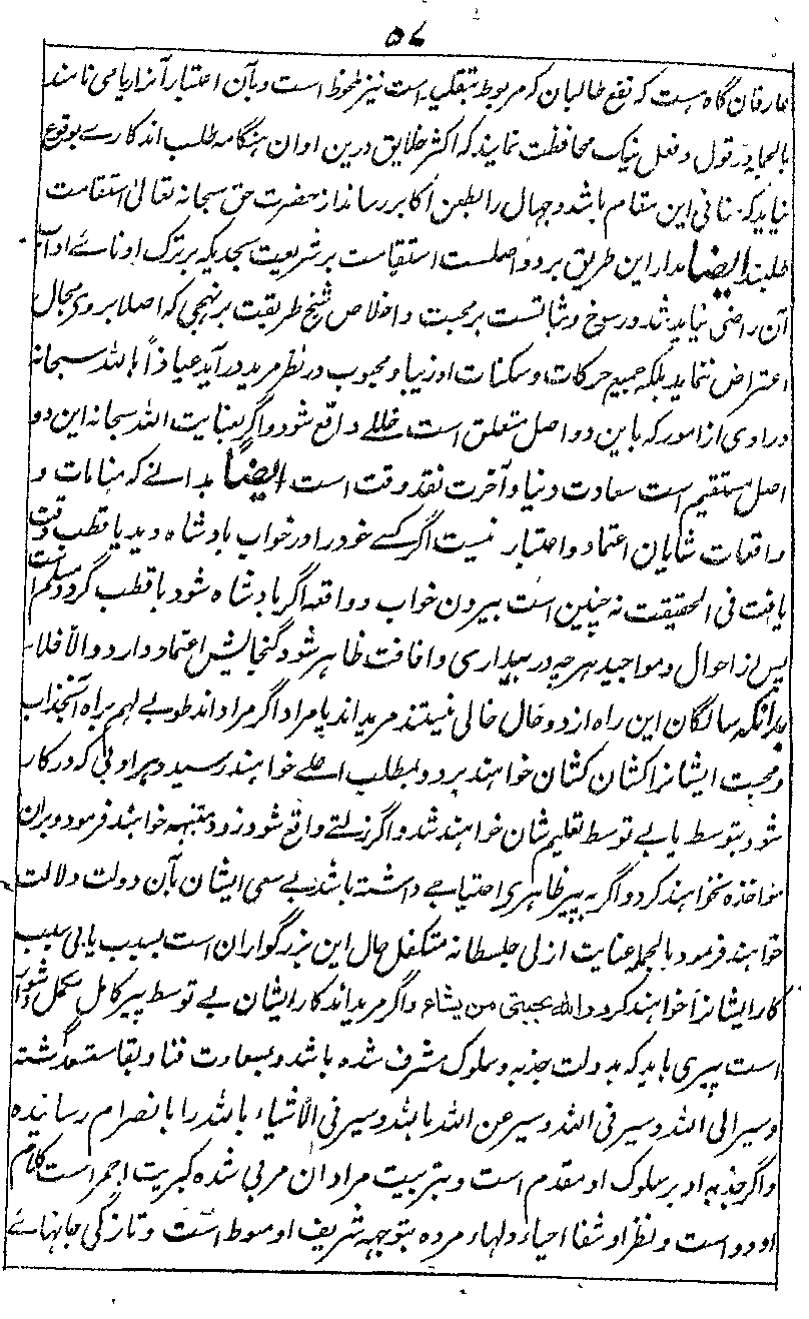 ۵۷
عارفان گاہ ہست کہ نفع طالبان کہ مربوط بتقلید است نیز ملحوظ است و بآن اعتبار آنرا ریا می نامند
بالجملہ در قول و فعل نیک محافظت نمایند کہ اکثر خلایق درین اوان ہنگامہ طلب اند کارے بوقوع
نیاید کہ منافی این مقام باشد و جہال را بطعن اکابر رساند از حضرت حق سبحانہ تعالیٰ استقامت
طلبند ایضا مدار این طریق بر دو اصلست استقامت بر شریعت بحدیکہ بر ترک ادنائے آداب
آن راضی نباید شد و رسوخ و ثباتست بر محبت و اخلاص شیخ طریقت بر نہجی کہ اصلا بر وی مجال
اعتراض نماند بلکہ جمیع حرکات و سکنات او زیبا و محبوب در نظر مرید درآید عیاذاً باللہ سبحانہ
در امری از امور کہ باین دو اصل متعلق است خللے واقع شود و اگر بعنایت اللہ سبحانہ این دو
اصل مستقیم است سعادت دنیا و آخرت نقد وقت است ایضاً بدانے کہ منامات و
واقعات شایان اعتماد و اعتبار نیست اگر کسے خود را در خواب بادشاہ دید یا قطب وقت
یافت فی الحقیقت نہ چنین است بیرون خواب و واقعہ اگر بادشاہ شود یا قطب گردد مسلم است
پس از احوال و مواجید ہر چہ در بیداری و افاقت ظاہر شود گنجایش اعتماد دارد والا فلا
بدانکہ سالکان این راہ از دو حال خالی نیستند مریدانند یا مراد اگر مراد اند طوبے لہم براہ انجذاب
و محبت ایشانرا کشان کشان خواہند برد و بمطلب اعلے خواہند رسید و ہر ادبی کہ درکار
شود بتوسط یا بے توسط تعلیم شان خواہند شد و اگر زلتے واقع شود زود متنبہہ خواہند فرمود و بران
مواخذہ نخواہند کرد و اگر بہ پیر ظاہری احتیاجے داشتہ باشند بے سعی ایشان بآن دولت دلالت
خواہند فرمود بالجملہ عنایت ازلی جل سلطانہ متکفل حال این بزرگواران است بسبب یا بی سبب
کار ایشانرا خواہند کرد واللہ یجتبی من یشاء و اگر مریدانند کار ایشان بے توسط پیر کامل مکمل دشوار
است پیری باید کہ بدولت جذبہ و سلوک مشرف شدہ باشد و بسعادت فنا و بقا مستسعد گشتہ
و سیر الی اللہ و سیر فی اللہ و سیر عن اللہ باللہ و سیر فی الاشیاء باللہ را بانصرام رسانیدہ
و اگر جذبہ او بر سلوک او مقدم است و بتربیت مرادان مربی شدہ کبریت احمر است کلام
او دوا است و نظر او شفا احیاء دلہاء مردہ بتوجہہ شریف او منوط است و تازگی جانہائے